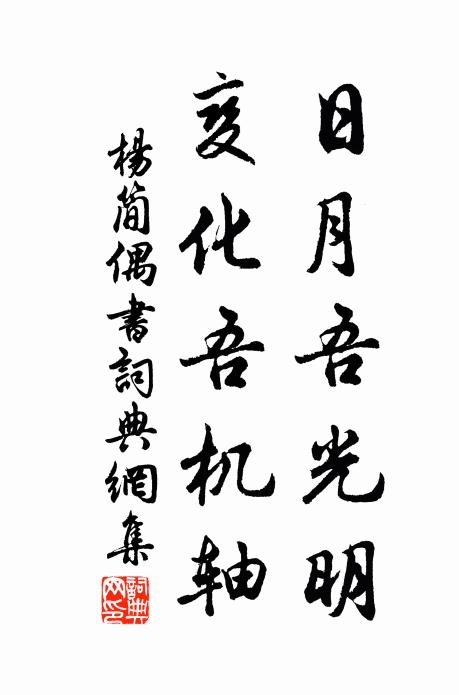 日月吾光明
变化吾机轴
楊简偶書詞典網集
詞典網印